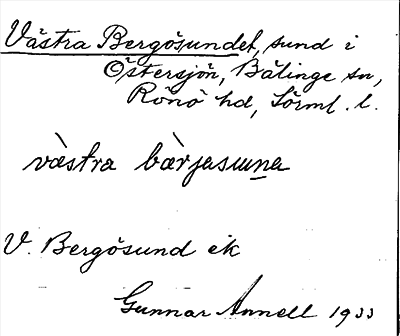 Västra Bergösundet, sund i
Östersjön, Bälinge sn,
Rönö hd, Sörml. l.
västra bärjasuna
V. Bergösund ek
Gunnar Annell 1933